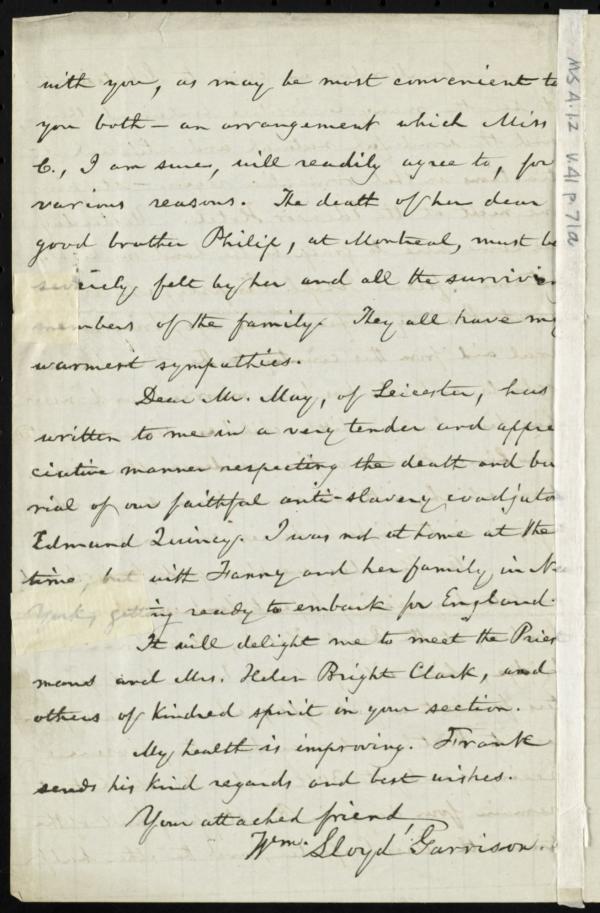 with you, as may be most convenient to
you both — an arrangement which Miss
C., I am sure, will readily agree to, for
various reasons. The death of her dear
good brother Philip, at Montreal, must be
severely felt by her and all the survivin
members of the family. They all have my
warmest sympathies.
Dear Mr. May, of Leicester, has
written to me in a very tender and appre
ciative manner respecting the death and bu
rial of our faithful anti-slavery coadjuto
Edmund Quincy. I was not at home at the
time, but with Fanny and her family in Ne
York, getting ready to embark for England.
It will delight me to meet the Pries
mans and Mrs. Helen Bright Clark, and
others of kindred spirit in your section.
My health is improving. Frank
sends his kind regards and best wishes.
Your attached friend
Wm. Lloyd Garrison.
MS A.1.2 V.41 p.71a